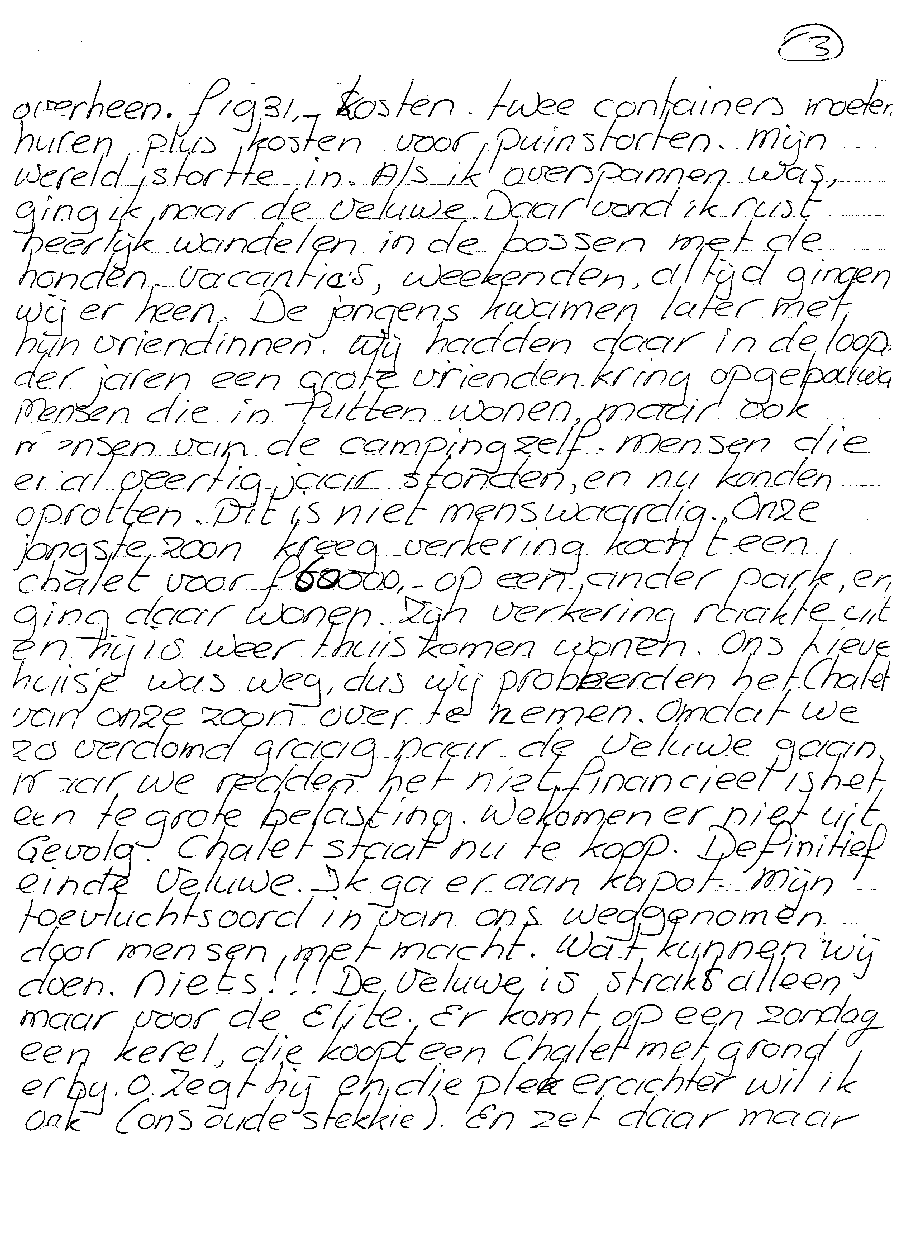 3
overheen. f 1931,- kosten. twee containers moeten
huren plus kosten voor puinstorten. Mijn
wereld stortte in. Als ik overspannen was,
ging ik naar de Veluwe. Daar vond ik rust
heerlijk wandelen in de bossen met de
honden, vacantie's, weekenden, altijd gingen
wij er heen. De jongens kwamen later met
hun vriendinnen. Wij hadden daar in de loop
der jaren een grote vrienden kring
Mensen die in Putten wonen, maar ook
mensen van de camping zelf. Mensen die
er al veertig jaar stonden, en nu konden
oprotten. Dit is niet menswaardig. Onze
jongste zoon kreeg verkering kocht een
chalet voor f 60000,- op een ander park, en
ging daar wonen. Zijn verkering raakte uit
en hij is weer thuis komen wonen. Ons lieve
huisje was weg, dus wij probeerden het Chalet
van onze zoon over te nemen. Omdat we
zo verdomd graag naar de Veluwe gaan,
maar we redden het niet, financieel is het
een te grote belasting. We komen er niet uit
Gevolg. Chalet staat nu te koop. Definitief
einde Veluwe. Ik ga er aan kapot. Mijn
toevluchtsoord in van ons weggenomen
door mensen met macht. Wat kunnen wij
doen. Niets!!! De Veluwe is straks alleen
maar voor de Elite. Er komt op een zondag
een kerel, die koopt een Chalet met grond
erby. O. Zegt hij en die plek erachter wil ik
ook (ons oude stekkie). En zet daar maar